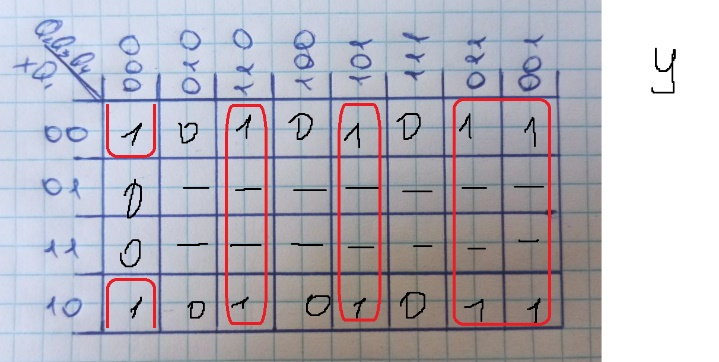 Q₂Q₃Q₄ 000 010 110 100 101 111 011 001 y
xQ₁
00 1 0 1 0 1 0 1 1
01 0 — — — — — — —
11 0 — — — — — — —
10 1 0 1 0 1 0 1 1